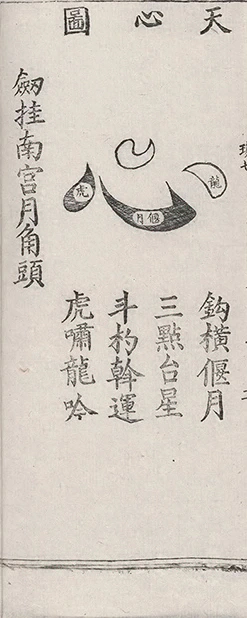 天心圖
龍
偃月
虎
鈎橫偃月
三點台星
斗杓斡運
虎嘯龍吟
劒挂南宫月角頭